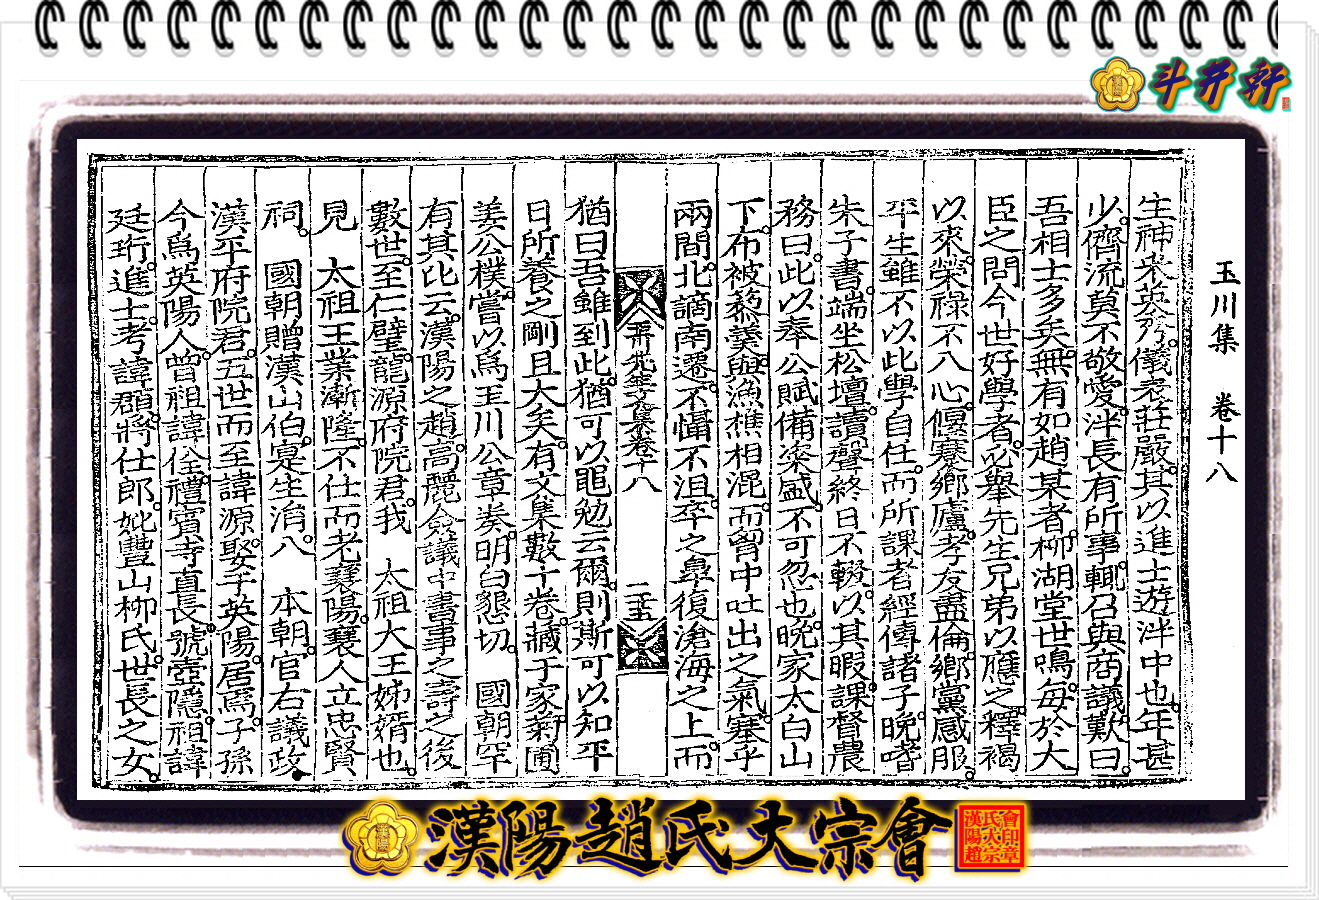 斗井軒
玉川集 卷十八
生神采英秀儀表莊嚴其以進士遊泮中也年甚
少儕流莫不敬愛泮長有所事輒召與商議歎曰
吾相士多矣無有如趙某者柳湖堂世鳴每於大
臣之問今世好學者必擧先生兄弟以應之釋褐
以來榮祿不入心偃蹇鄕廬孝友盡倫鄕黨感服
平生雖不以此學自任而所課者經傳諸子晚嗜
朱子書端坐松壇讀聲終日不輟以其暇課督農
務曰此以奉公賦備粢盛不可忽也晚家太白山
下布被藜羹與漁樵相混而胷中吐出之氣塞乎
兩間北謫南遷不懾不沮卒之皐復滄海之上而
先生文集卷十八
猶曰吾雖到此猶可以黽勉云爾則斯可以知平
日所養之剛且大矣有文集數十卷藏于家菊圃
姜公樸嘗以爲玉川公章奏明白懇切 國朝罕
有其比云漢陽之趙高麗僉議中書事之壽之後
數世至仁璧龍源府院君我 太祖大王姊婿也
見 太祖王業漸隆不仕而老襄陽襄人立忠賢
祠 國朝贈漢山伯寔生涓入 本朝官右議政
漢平府院君五世而至諱源娶于英陽居焉子孫
今爲英陽人曾祖諱佺禮賓寺直長號壺隱祖諱
廷珩進士考諱頵將仕郎妣豐山柳氏世長之女
漢陽趙氏大宗會
漢陽趙氏大宗會印章